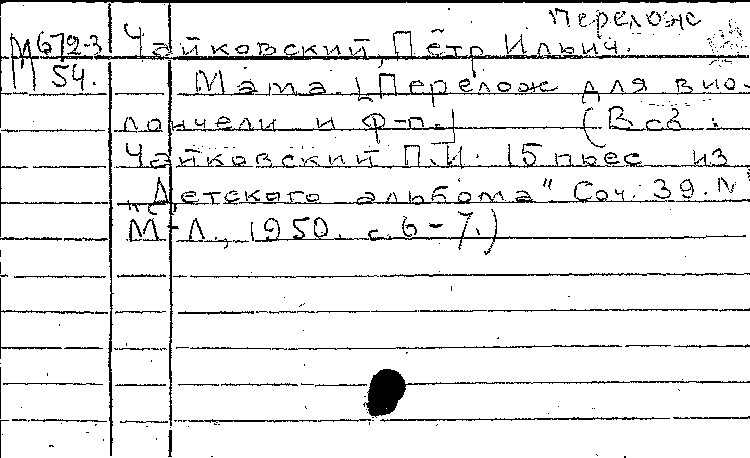 Перелож
М 672-3 Чайковский, Пётр Ильич.
54. Мама. [Перелож для вио-
лончели и ф-п.] (В сб:
Чайковский П.И. 15 пьес из
"Детского альбома". Соч. 39. №
М-Л., 1950. с. 6-7.)